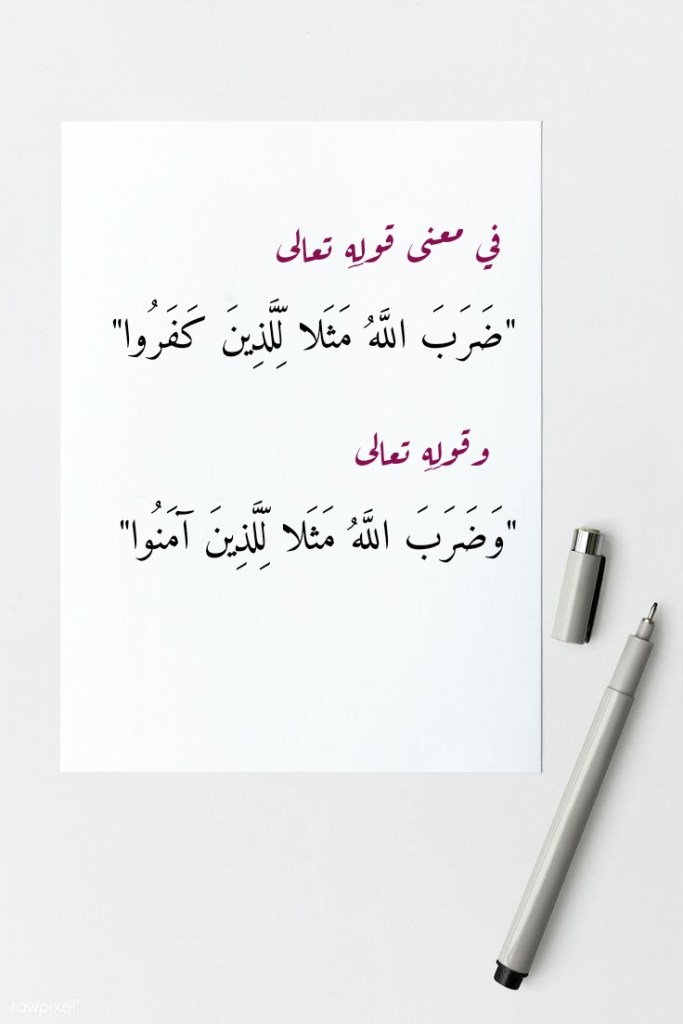 في معنى قولِهِ تعالى
"ضَرَبَ اللَّهُ مَثَلا لِّلَّذِينَ كَفَرُوا"
وقولِهِ تعالى
"وَضَرَبَ اللَّهُ مَثَلا لِّلَّذِينَ آمَنُوا"
rawpixel